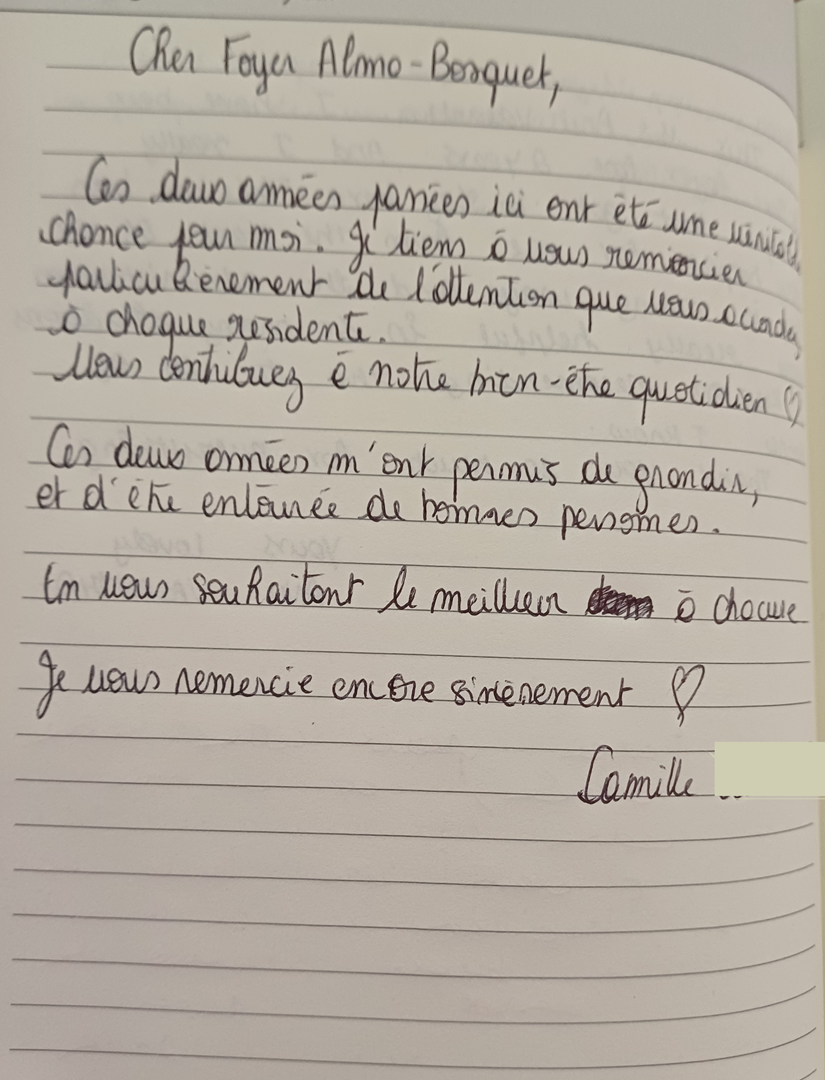 Cher Foyer Almo-Bosquet,
Ces deux années passées ici ont été une véritable
chance pour moi. Je tiens à vous remercier
particulièrement de l'attention que vous accordez
à chaque résidente.
Vous contribuez à notre bien-être quotidien ♡
Ces deux années m'ont permis de grandir,
et d'être entourée de bonnes personnes.
En vous souhaitant le meilleur à chacune
Je vous remercie encore sincèrement ♡
Camille